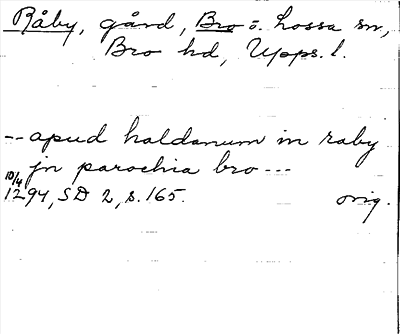 Råby, gård, Bro o. Lossa sn,
Bro hd, Upps. l.
-- apud haldanum in raby
jn parochia bro ---
10/4
1294, SD 2, s. 165. orig.